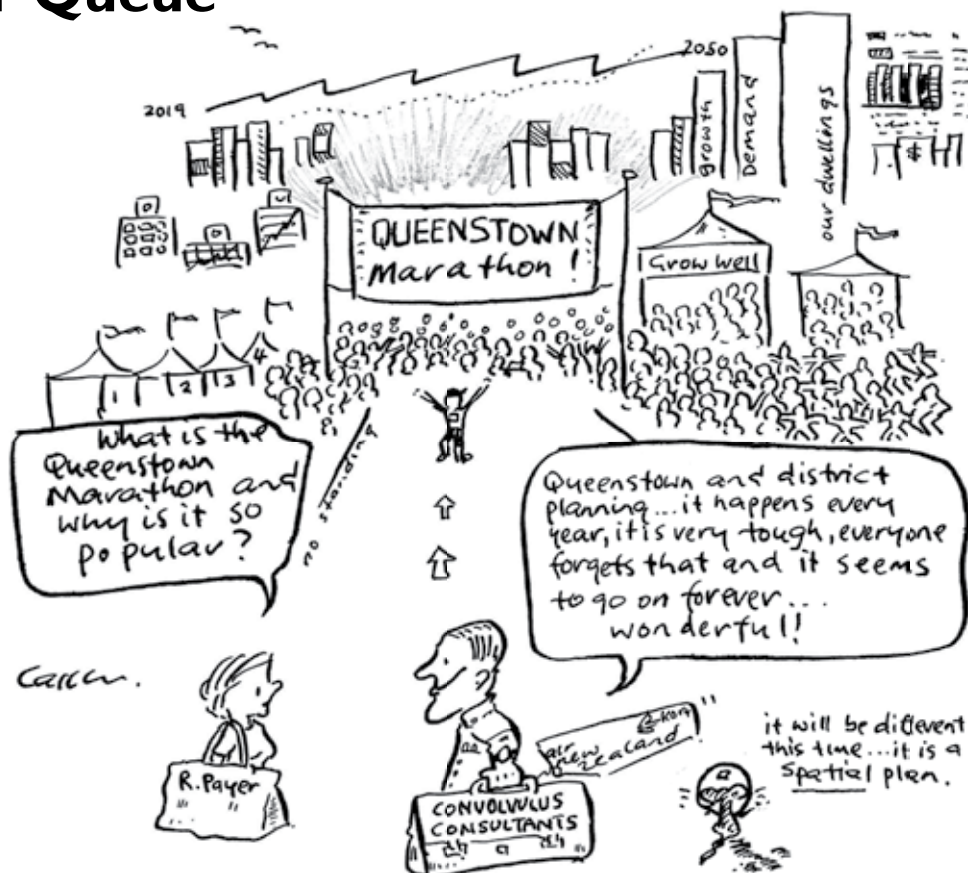 Queue
2019
2050
growth
Demand
our dwellings
$
QUEENSTOWN
Marathon!
Grow well
1
2
3
4
no standing
What is the
Queenstown
Marathon and
why is it so
popular?
Queenstown and district
planning...it happens every
year, it is very tough, everyone
forgets that and it seems
to go on forever...
wonderful!
R. Payer
CONVOLVULUS
CONSULTANTS
air
new
zealand
it will be different
this time...it is a
spatial plan.